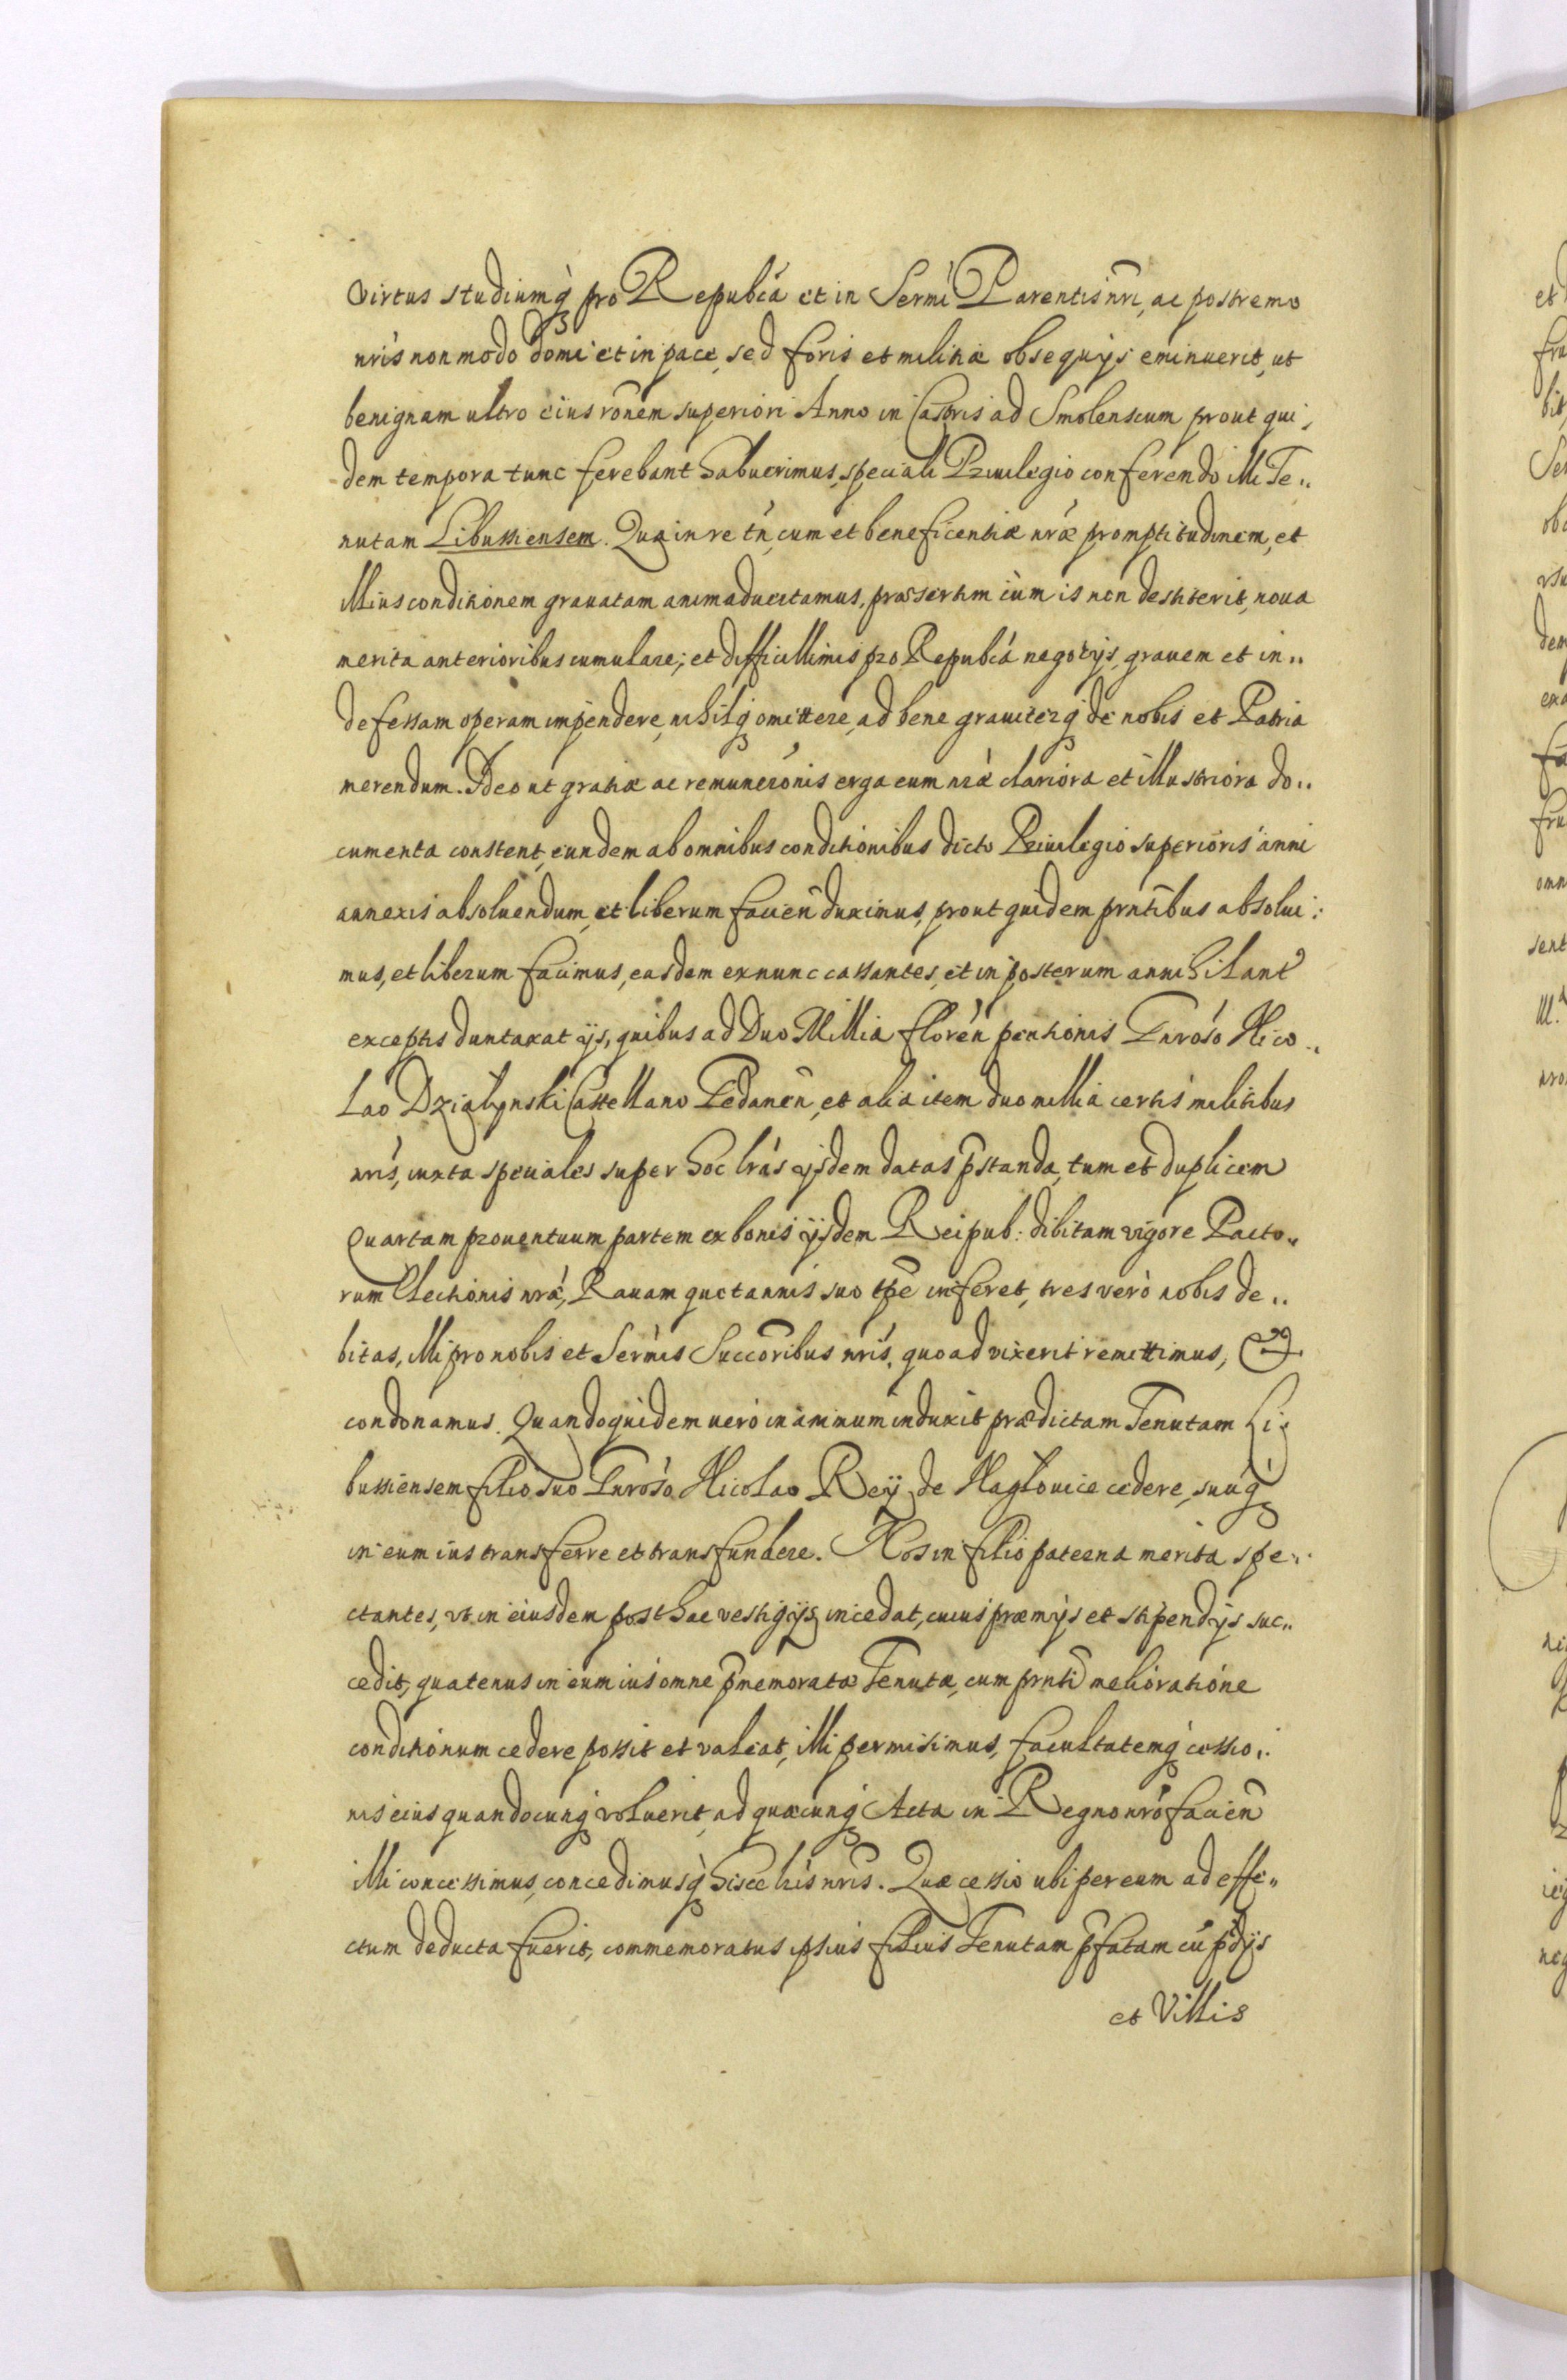 Virtus studiumq̀ pro Republ̃ca et in Sermi Parentis nr̃i, ac postremo
nris non modo domi et in pace, sed foris et militiæ obsequÿs eminuerit, ut
benignam ultro eius rõnem superiori Anno in Castris ad Smolenscum prout qui,
dem tempora tunc ferebant habuerimus, speciali Priuilegio conferendo illi Te,,
nutam Libussiensem. Qua in re tń, cum et beneficentiæ nræ promptitudinem, et
illius conditionem grauatam animaduertamus, præsertim cùm is non destiterit, noua
merita anterioribus cumulare; et difficillimis pro Republ̃ca negotÿs, grauem et in,,
defessam operam impendere, nihilq̀ omittere, ad bene grauiterq̀ de nobis et Patria
merendum. Ideo ut gratiæ ac remunerõnis erga eum nræ clariora et illustriora do,,
cumenta constent, eundem ab omnibus conditionibus dicto Priuilegio superioris anni
annexis absoluendum, et liberum facieñ duximus, prout quidem prñtibus absolui:
mus, et liberum facimus, easdem ex nunc cassantes, et in posterum annihilant̃
exceptis duntaxat ÿs, quibus ad Duo Millia floreń pensionis Gnroso Nico,,
lao Dzialynski Castellano Gedaneñ, et alia item duo millia certis militibus
nris, iuxta speciales super hoc lr̃as ÿsdem datas p̃standa, tum et duplicem
Quartam prouentuum partem ex bonis ÿsdem Reipub: debitam vigore Pacto,,
rum Electionis nræ, Rauam quotannis suo tp̃e inferet, tres verò nobis de,,
bitas, illi pro nobis et Sermis Succõribus nris, quoad vixerit remittimus, &
condonamus. Quandoquidem uerò in animum induxit prædictam Tenutam Li,
bussiensem filio suo Gnroso Nicolao Reÿ de Naglouice cedere, suuq̀
in eum ius transferre et transfundere. Nos in filio paterna merita spe,,
ctantes, vt in eiusdem posthac vestigÿs incedat, cuius præmÿs et stipendÿs suc,,
cedit, quatenus in eum ius omne p̃memoratæ Tenutæ, cum prñti melioratione
conditionum cedere possit et valeat, illi permisimus, facultatemq̀ cessio,,
nis eius quandocunq̀ voluerit, ad quæcunq̀ Acta in Regno nro facieñ
illi concessimus, concedimusq̀ hisce lris nris. Quæ cessio ubi per eum ad effe,,
ctum deducta fuerit, commemoratus ipsius filius Tenutam p̃fatam cũ p̃dÿs
et Villis